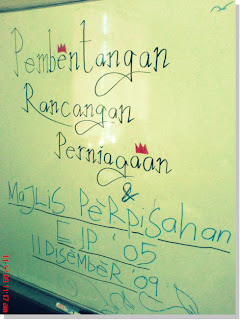 Pembentangan
Rancangan
Perniagaan
&
MAJLIS PERPISAHAN
EJP '05
11 DISEMBER '09